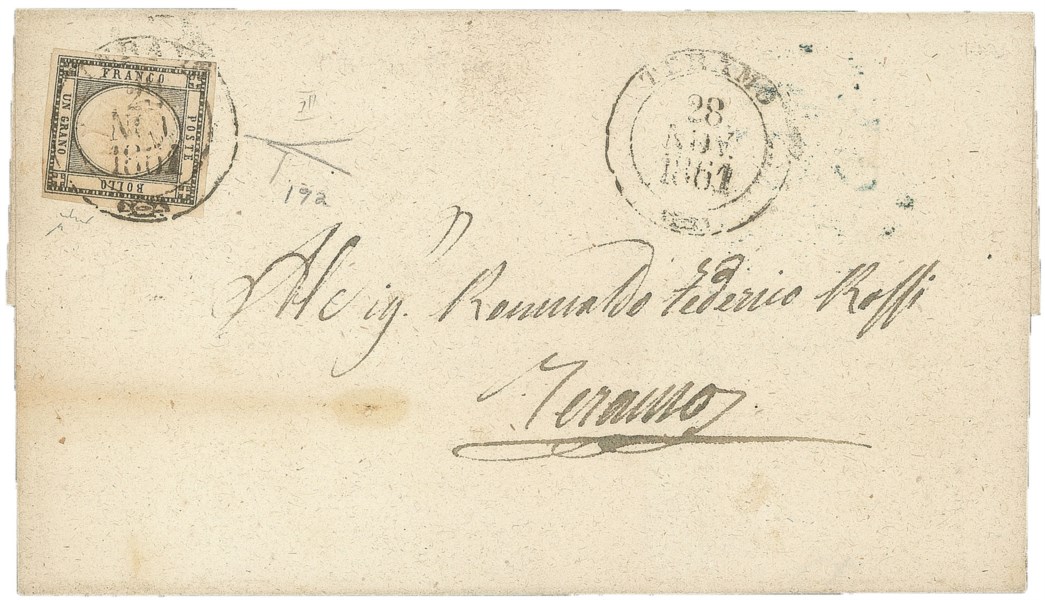 FRANCO
POSTE
BOLLO
UN GRANO
NOV
TERAMO
28
NOV.
1861
192
Al Sig.r Romualdo Federico Rossi
Teramo